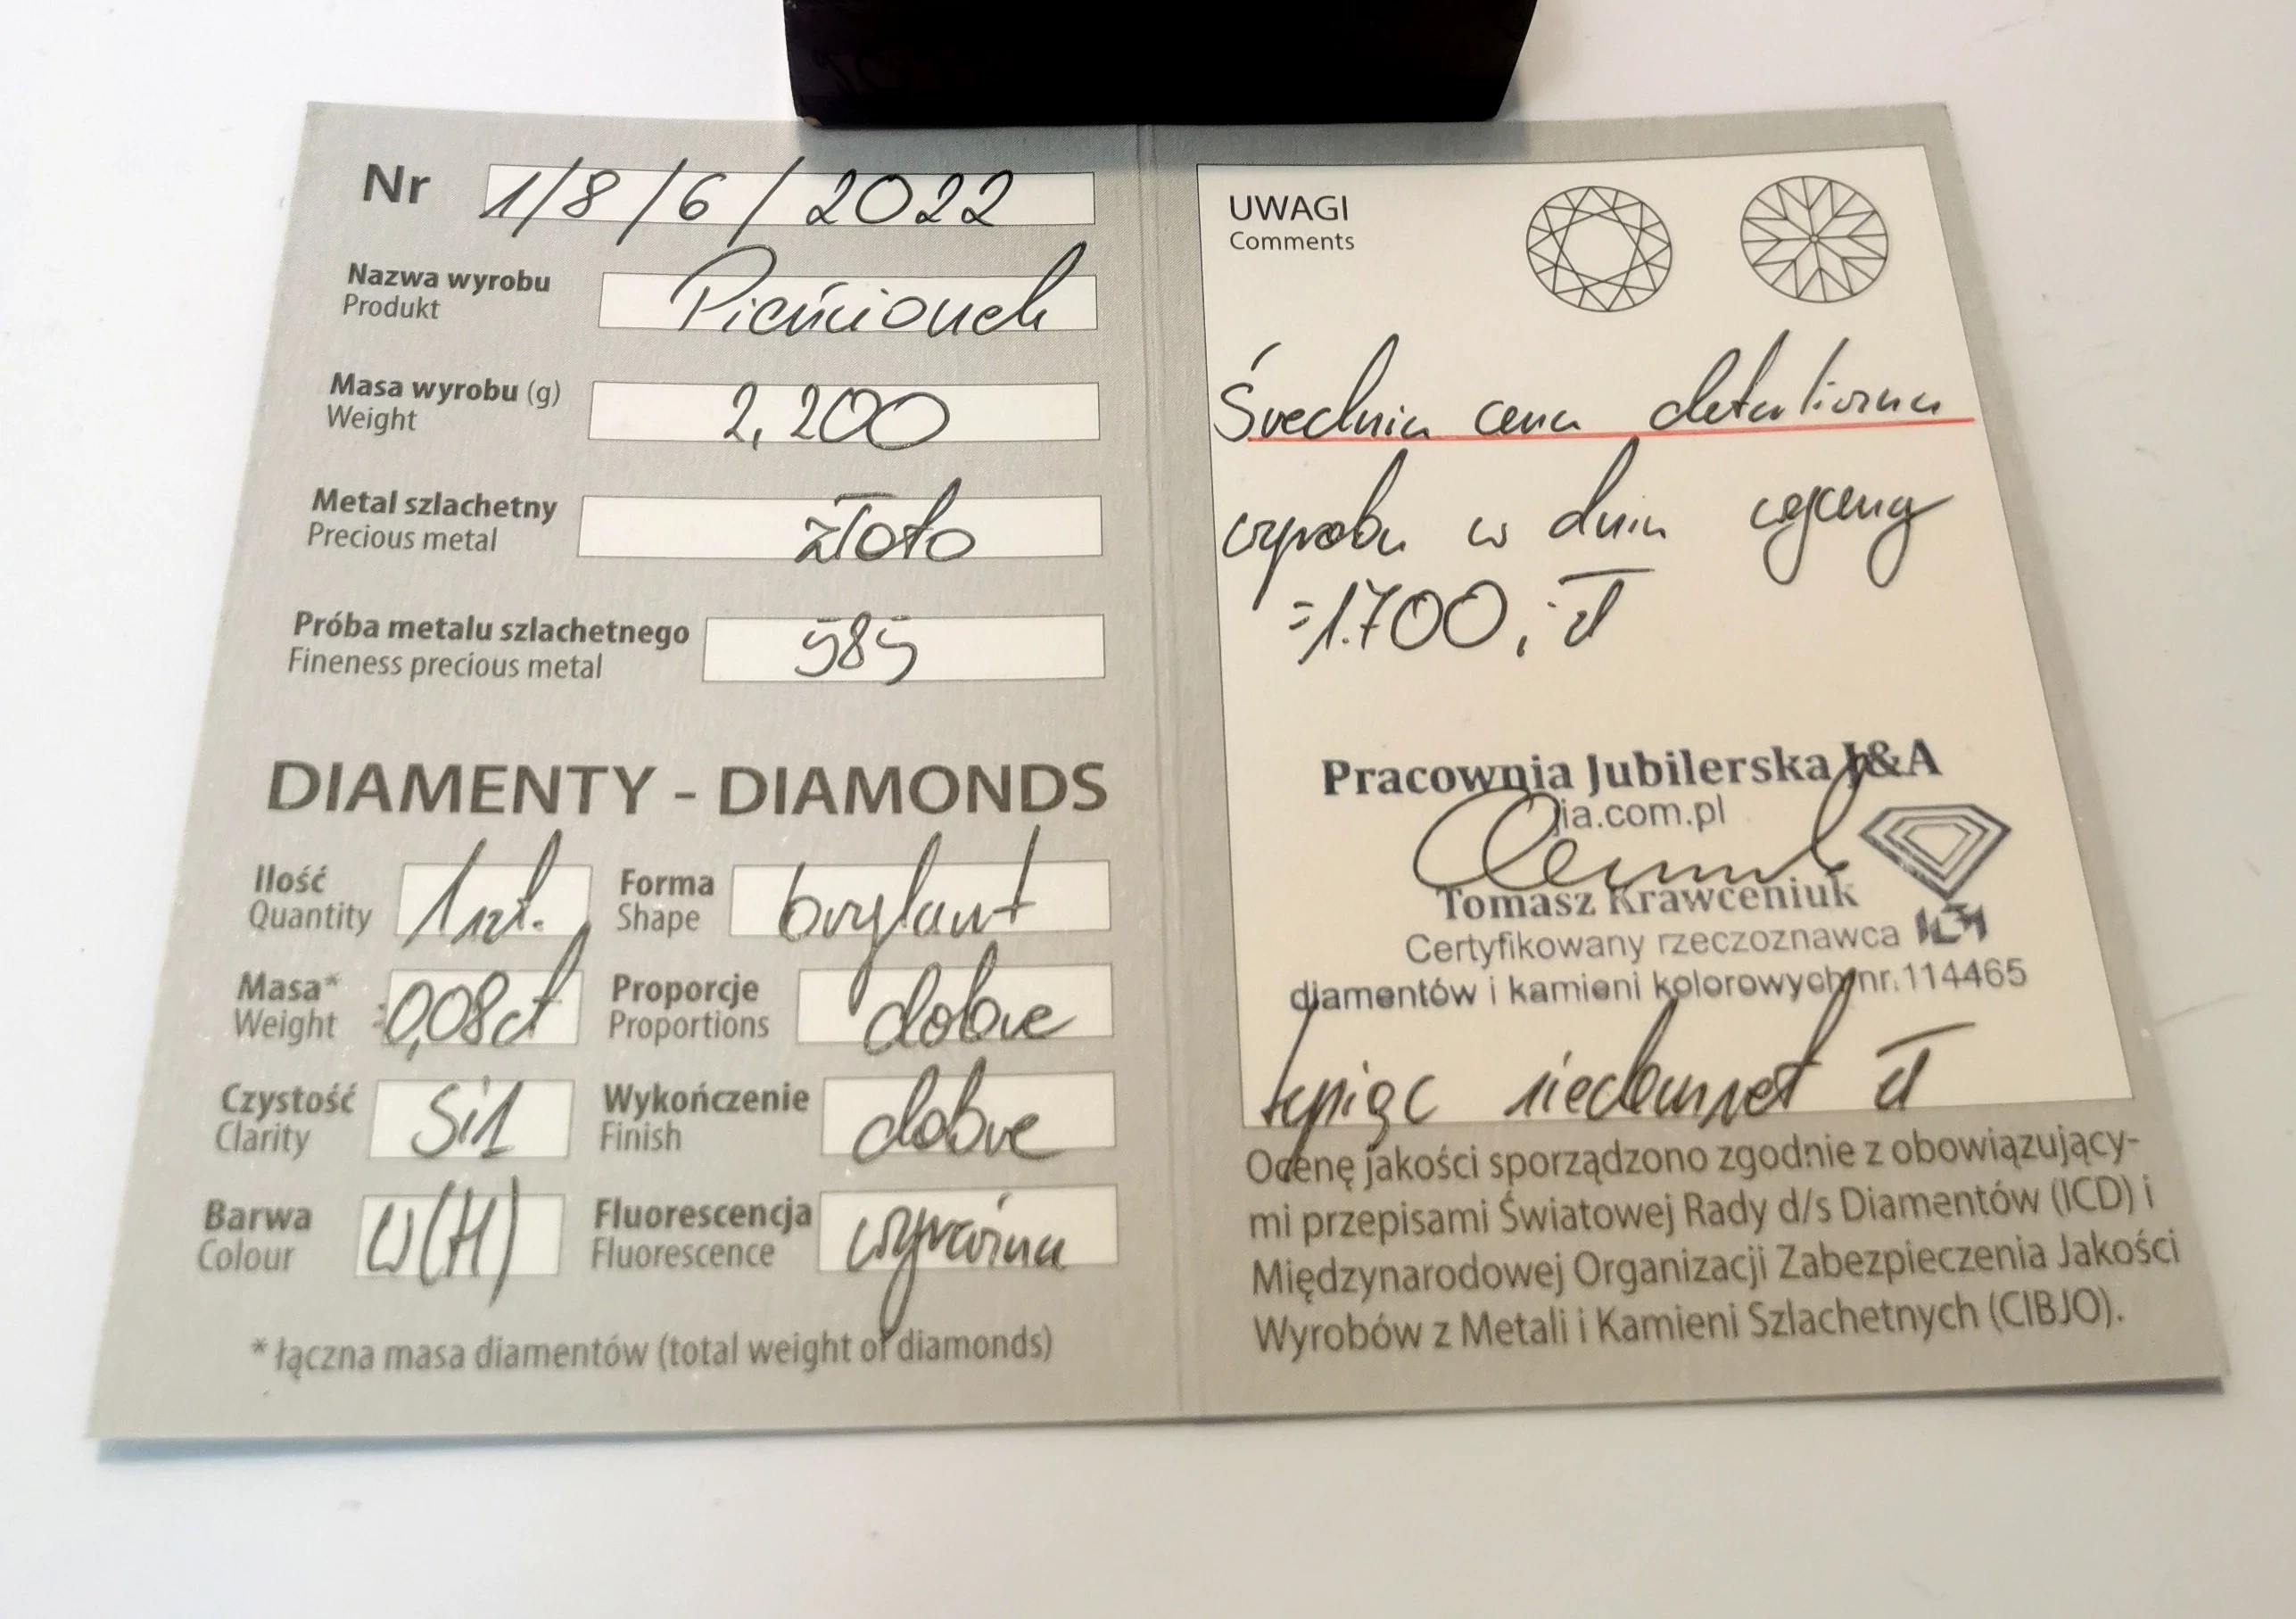 Nr 1/8/6/2022
Nazwa wyrobu Pierścionek
Produkt
Masa wyrobu (g) 2,200
Weight
Metal szlachetny złoto
Precious metal
Próba metalu szlachetnego 585
Fineness precious metal
DIAMENTY - DIAMONDS
Ilość 1 szt. Forma brylant
Quantity Shape
Masa* 0,08ct Proporcje dobre
Weight Proportions
Czystość Si1 Wykończenie dobre
Clarity Finish
Barwa W(H) Fluorescencja wyraźna
Colour Fluorescence
* łączna masa diamentów (total weight of diamonds)
UWAGI
Comments
Średnia cena detaliczna
wyrobu w dniu wyceny
=1.700,- zł
Pracownia Jubilerska J&A
jia.com.pl
Tomasz Krawceniuk
Certyfikowany rzeczoznawca
diamentów i kamieni kolorowych nr. 114465
tysiąc siedemset zł
Ocenę jakości sporządzono zgodnie z obowiązujący-
mi przepisami Światowej Rady d/s Diamentów (ICD) i
Międzynarodowej Organizacji Zabezpieczenia Jakości
Wyrobów z Metali i Kamieni Szlachetnych (CIBJO).